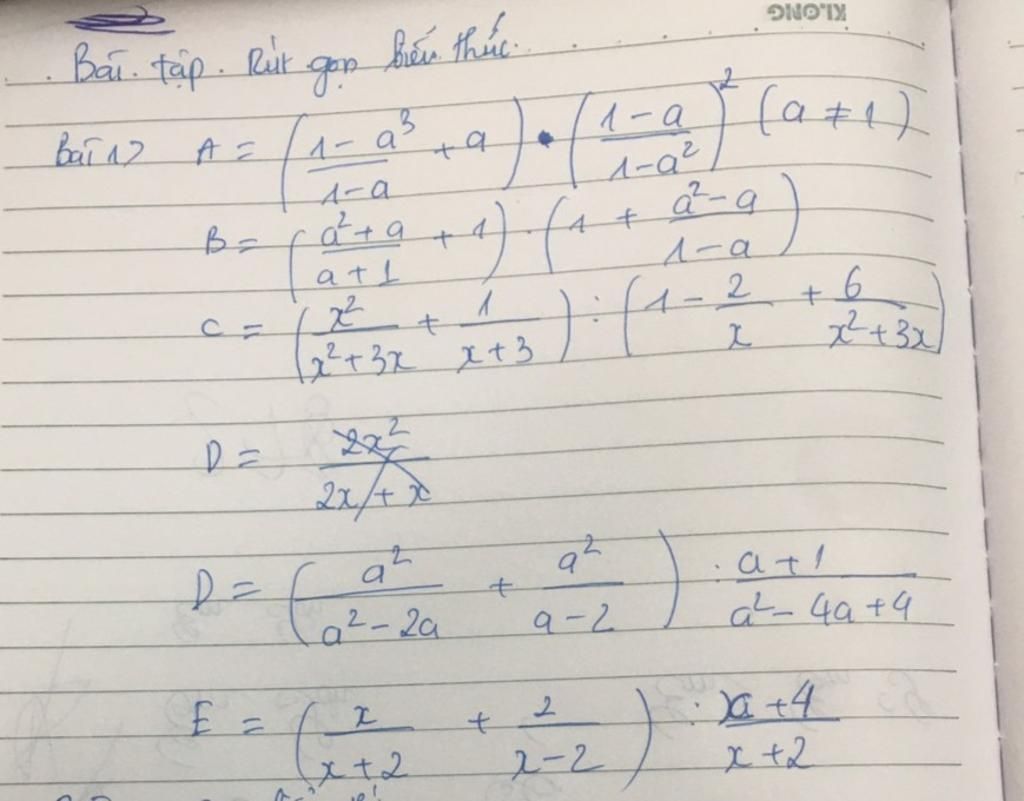 KLONG
Bài tập. Rút gọn biểu thức.
Bài 1> A = ( (1 - a³)/(1 - a) + a ) • ( (1 - a)/(1 - a²) )² (a ≠ 1)
B = ( (a² + a)/(a + 1) + 1 ) . ( 1 + (a² - a)/(1 - a) )
C = ( x²/(x² + 3x) + 1/(x + 3) ) : ( 1 - 2/x + 6/(x² + 3x) )
D = 2x²/(2x + x)
D = ( a²/(a² - 2a) + a²/(a - 2) ) : (a + 1)/(a² - 4a + 4)
E = ( x/(x + 2) + 2/(x - 2) ) : (xa + 4)/(x + 2)